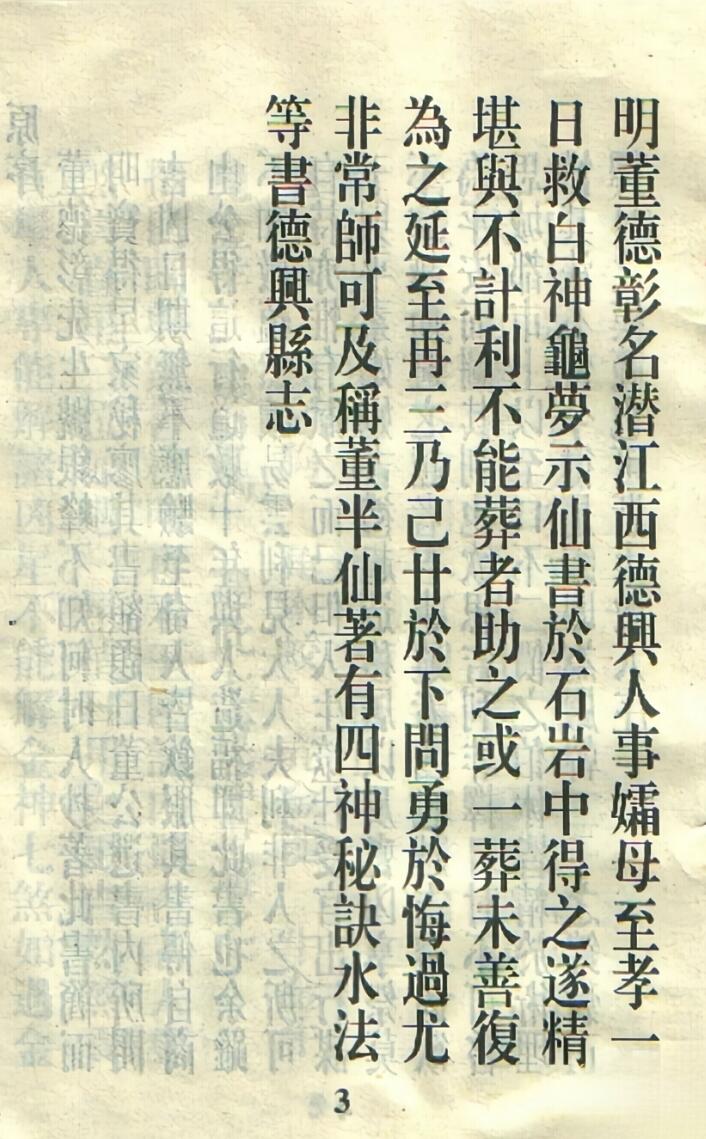 明董德彰名潜江西德興人事孀母至孝一
日救白神龜夢示仙書於石岩中得之遂精
堪與不計利不能葬者助之或一葬未善復
為之延至再三乃己廿於下問勇於悔過尤
非常師可及稱董半仙著有四神秘訣水法
等書德興縣志
3